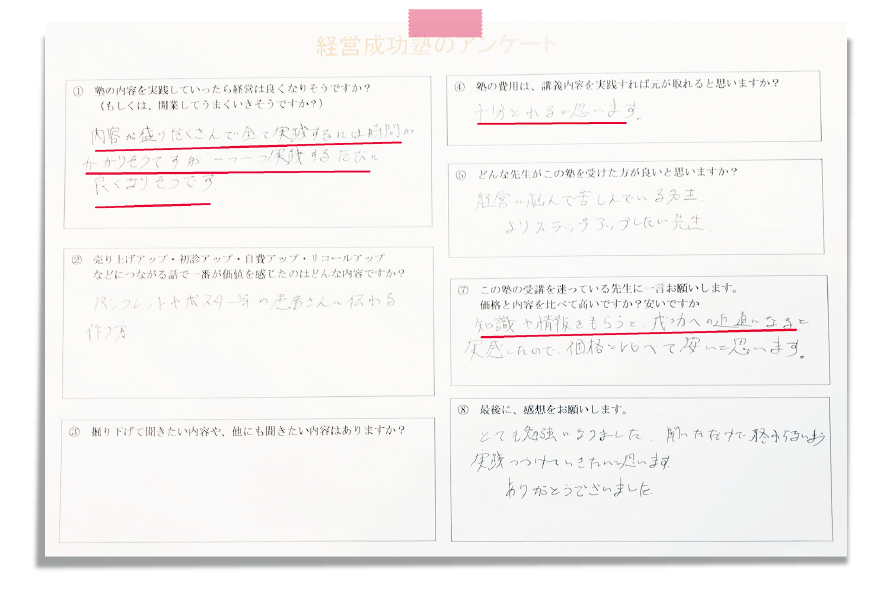 経営成功塾のアンケート
① 塾の内容を実践していったら経営は良くなりそうですか？
（もしくは、開業してうまくいきそうですか？）
内容が盛りだくさんで全て実践するには時間が
かかりそうですが 一つ一つ実践するたびに
良くなりそうです
② 売り上げアップ・初診アップ・自費アップ・リコールアップ
などにつながる話で一番が価値を感じたのはどんな内容ですか？
パンフレットやポスター等の患者さんに伝わる
作り方.
③ 掘り下げて聞きたい内容や、他にも聞きたい内容はありますか？
④ 塾の費用は、講義内容を実践すれば元が取れると思いますか？
十分とれると思います。
⑤ どんな先生がこの塾を受けた方が良いと思いますか？
経営に悩んで苦しんでいる先生.
よりステップアップしたい先生.
⑦ この塾の受講を迷っている先生に一言お願いします。
価格と内容を比べて高いですか？安いですか
知識や情報をもらうと、成功への近道になると
実感したので、価格と比べて安いと思います。
⑧ 最後に、感想をお願いします。
とても勉強になりました. 聞いただけで終わらないよう
実践つづけていきたいと思います.
ありがとうございました.